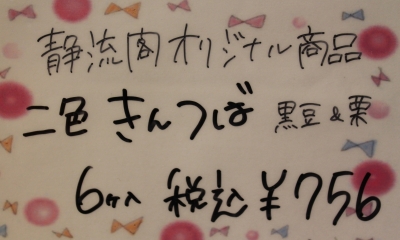 静流閣オリジナル商品
二色きんつば 黒豆&栗
6ヶ入 税込¥756